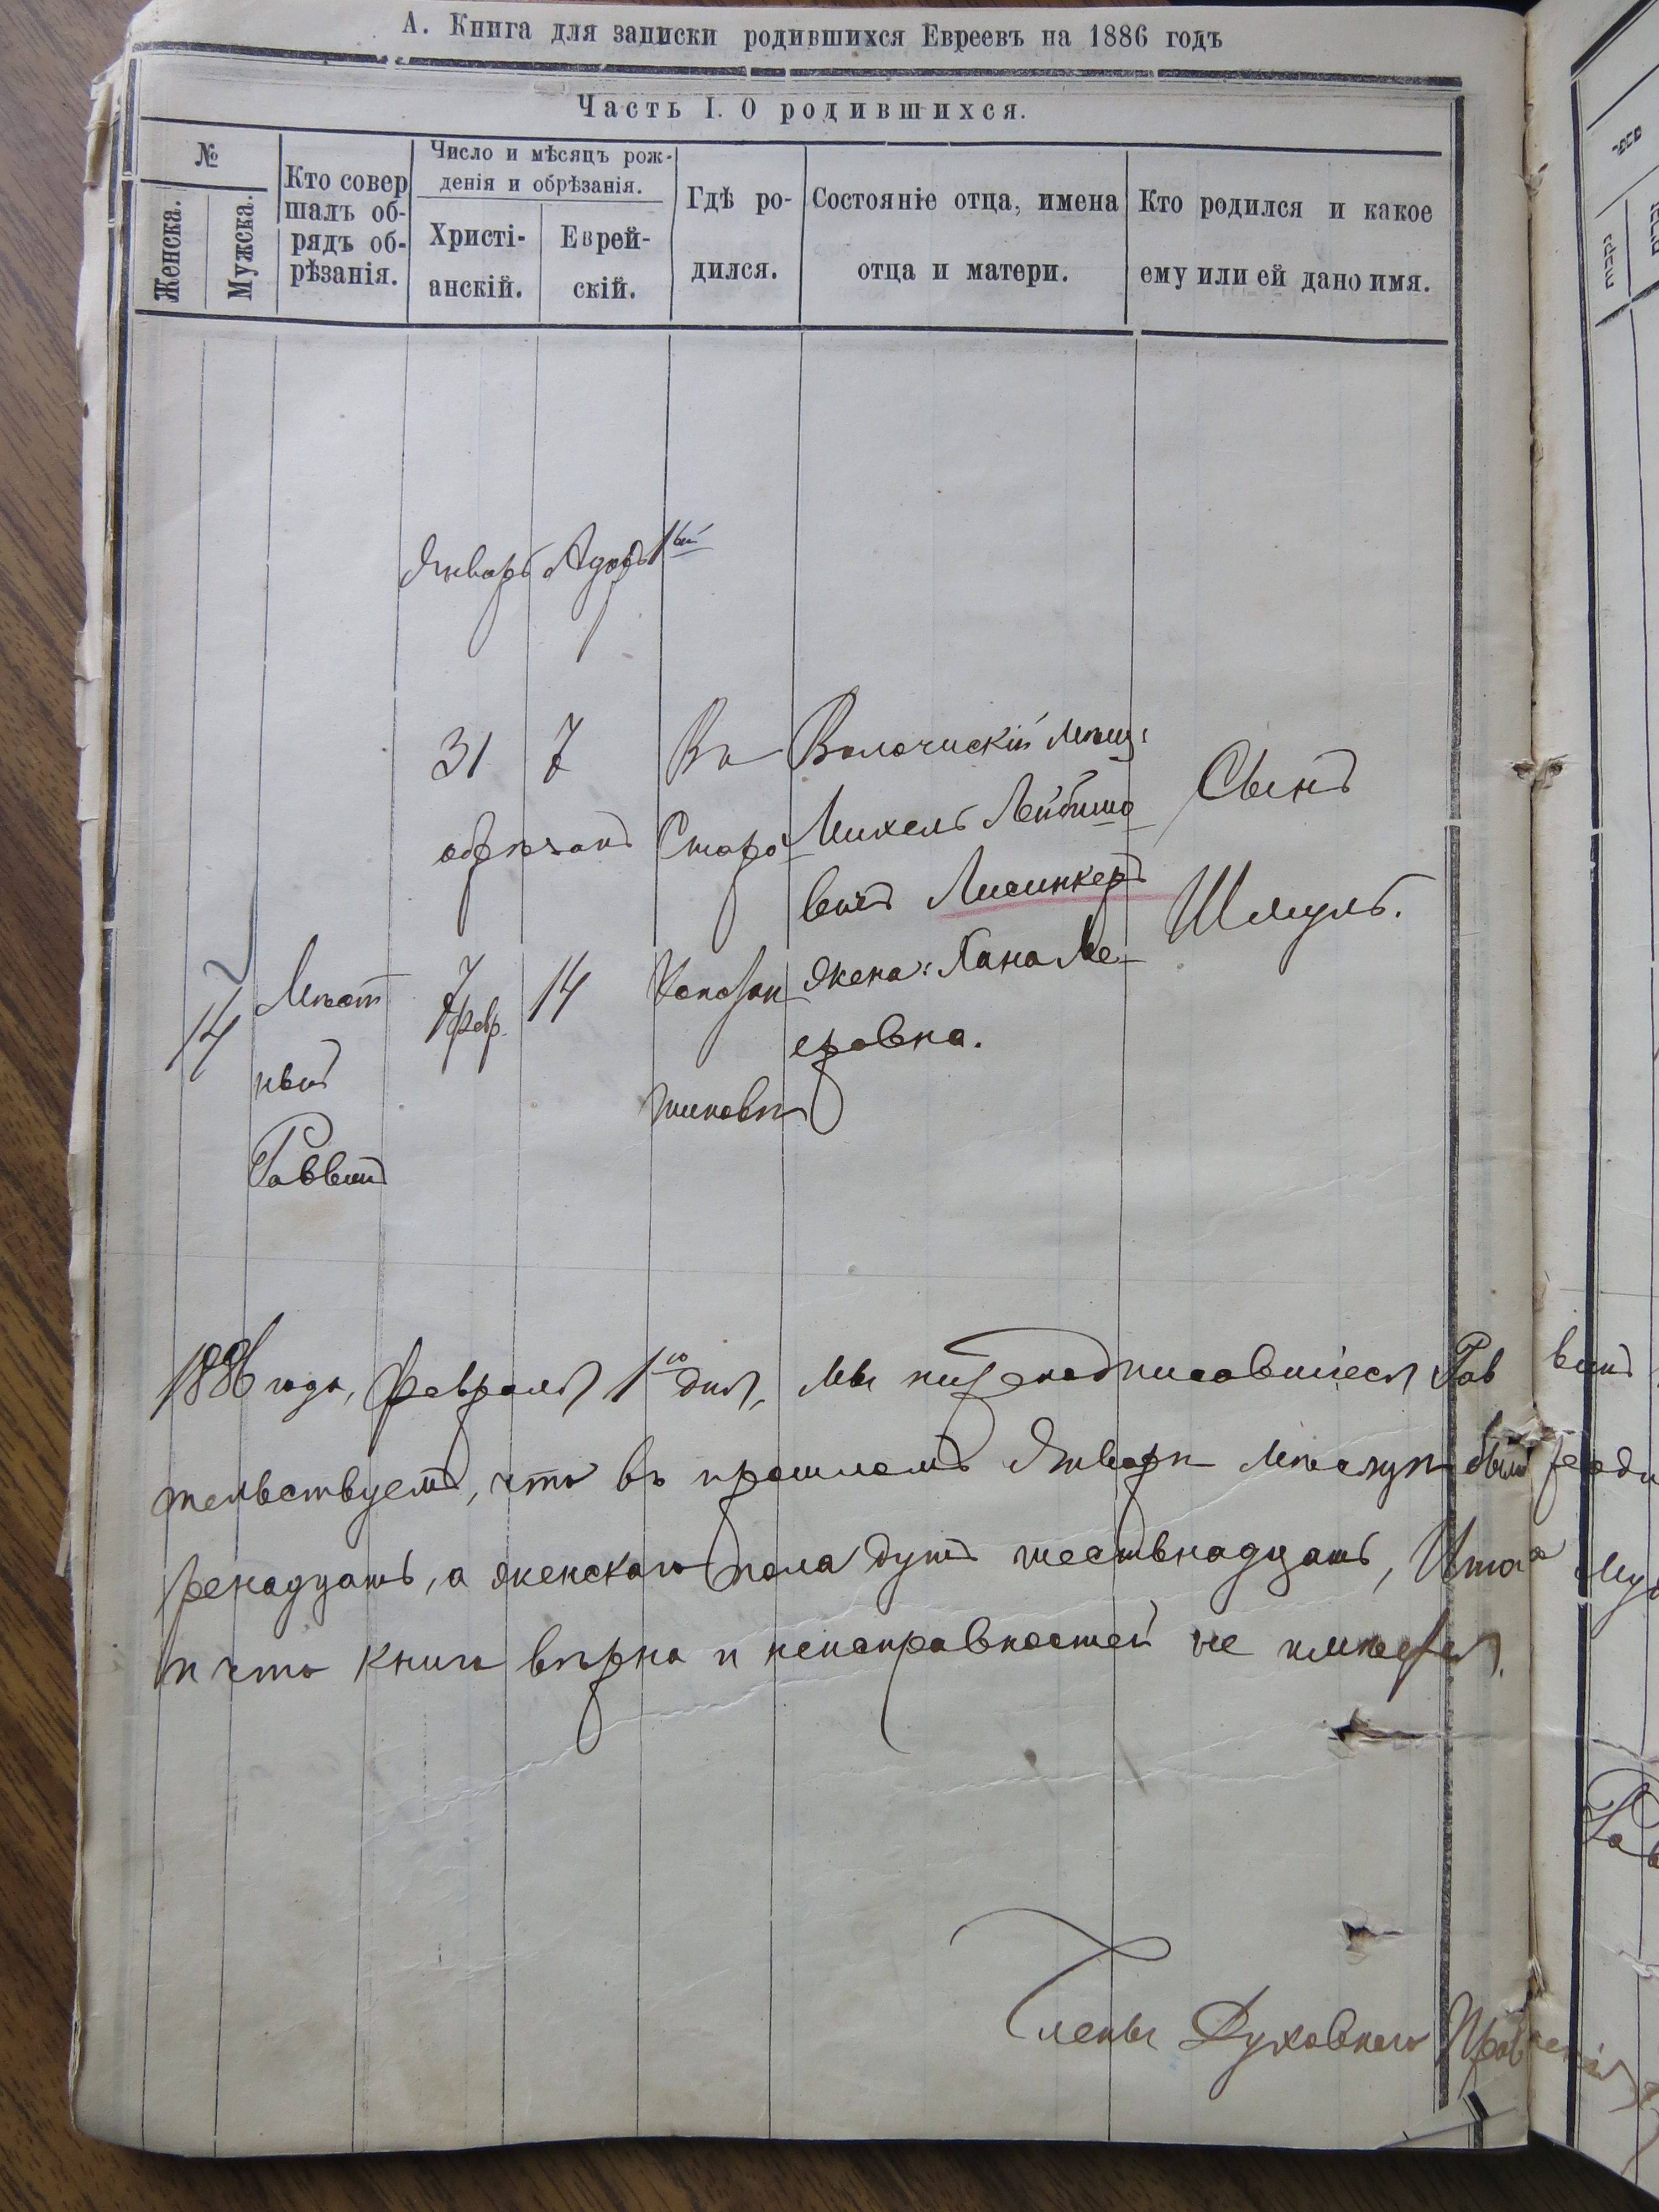 А. Книга для записки родившихся Евреевъ на 1886 годъ
Часть I. О родившихся.
№
Женска.
Мужска.
Кто совер
шалъ об-
рядъ об-
рѣзанія.
Число и мѣсяцъ рож-
денія и обрѣзанія.
Христі-
анскій.
Еврей-
скій.
Гдѣ ро-
дился.
Состояніе отца, имена
отца и матери.
Кто родился и какое
ему или ей дано имя.
Январь Адаръ 1ый
14
Мѣст
ный
Раввинъ
31
обрѣзанъ
7
февр.
7
14
Въ
Старо
Констан
тиновѣ
Волочискій мѣщ:
Михель Лейбишо
вичъ Лисинкеръ
жена: Хана Ме-
еровна.
Сынъ
Шмуль.
1886 года, февраля 1го дня, мы нижеподписавшіеся Рав винъ
тельствуемъ, что въ прошломъ Январѣ мѣсяцѣ было
ренадцать, а женскаго пола душъ шестьнадцать, Итого
и что книга вѣрна и неисправностей не имѣется.
Члены Духовнаго Правленія